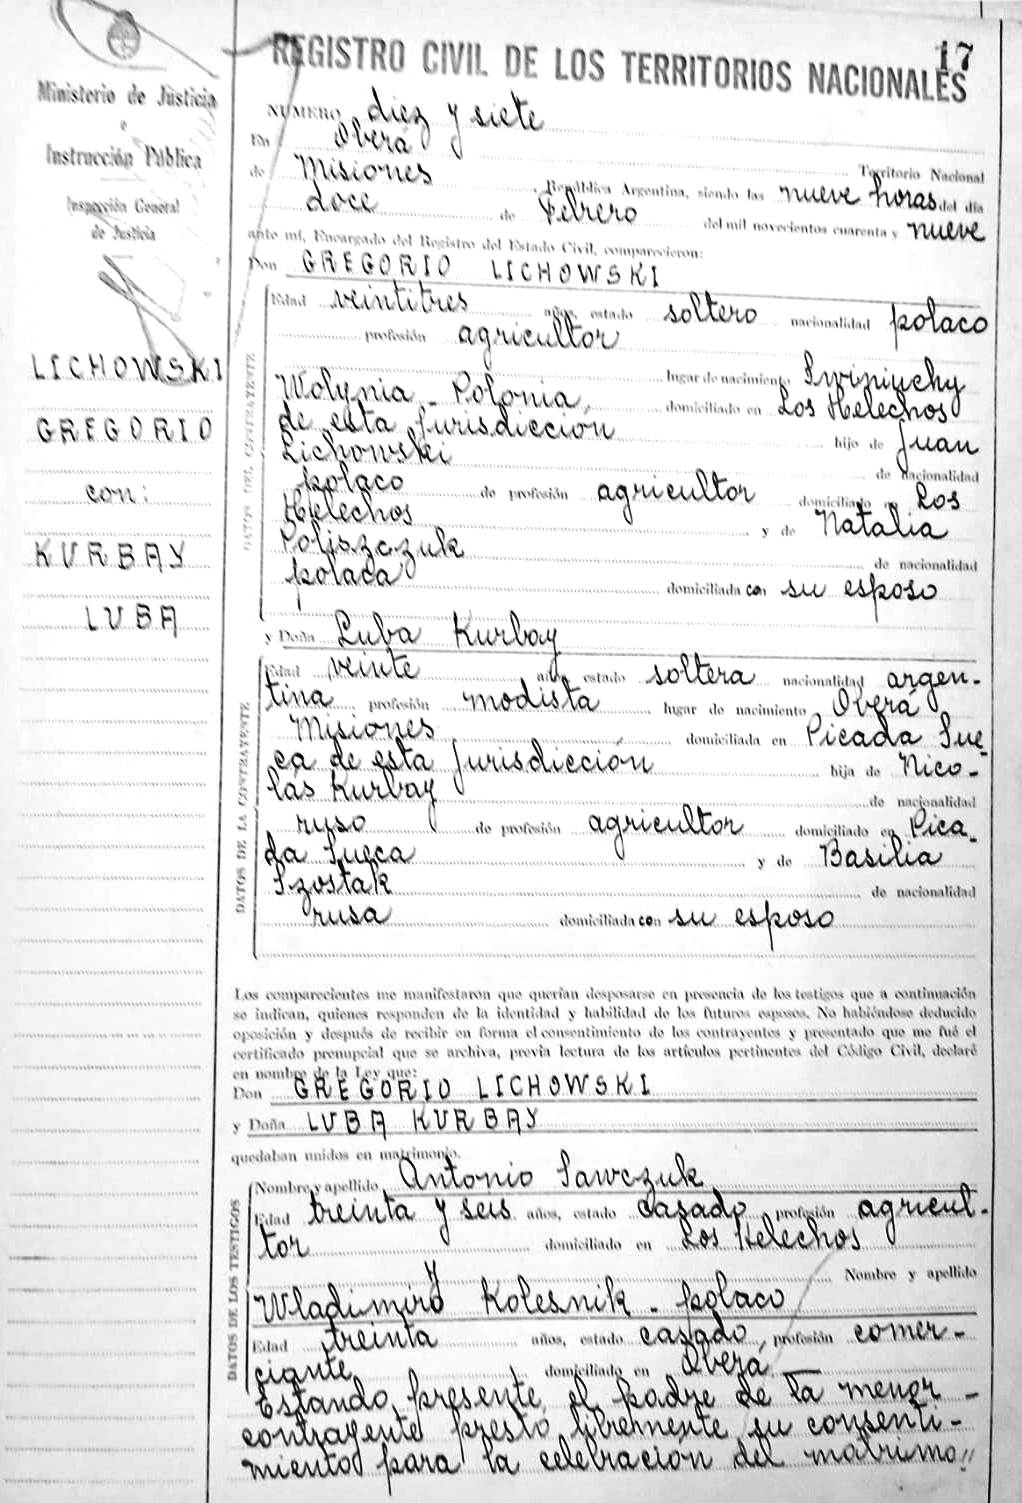 17
REGISTRO CIVIL DE LOS TERRITORIOS NACIONALES
Ministerio de Justicia
e
Instrucción Pública
Inspección General
de Justicia
LICHOWSKI
GREGORIO
con:
KURBAY
LUBA
NUMERO diez y siete
En Oberá
Territorio Nacional
de Misiones República Argentina, siendo las nueve horas del día
doce de Febrero del mil novecientos cuarenta y nueve
ante mí, Encargado del Registro del Estado Civil, comparecieron:
Don GREGORIO LICHOWSKI
DATOS DEL CONTRAYENTE
Edad veintitres años, estado soltero nacionalidad polaco
profesión agricultor
lugar de nacimiento Swiniuchy
Wolynia - Polonia, domiciliado en Los Helechos
de esta jurisdiccion hijo de Juan
Lichowski de nacionalidad
polaco de profesión agricultor domiciliado en Los
Helechos y de Natalia
Poliszczuk de nacionalidad
polaca domiciliada con su esposo
y Doña Luba Kurbay
DATOS DE LA CONTRAYENTE
Edad veinte años, estado soltera nacionalidad argen-
tina profesión modista lugar de nacimiento Oberá
Misiones domiciliada en Picada Sue-
ca de esta jurisdicción hija de Nico-
lás Kurbay de nacionalidad
ruso de profesión agricultor domiciliado en Pica-
da Sueca y de Basilia
Szostak de nacionalidad
rusa domiciliada con su esposo
Los comparecientes me manifestaron que querían desposarse en presencia de los testigos que a continuación
se indican, quienes responden de la identidad y habilidad de los futuros esposos. No habiéndose deducido
oposición y después de recibir en forma el consentimiento de los contrayentes y presentado que me fué el
certificado prenupcial que se archiva, previa lectura de los artículos pertinentes del Código Civil, declaré
en nombre de la Ley que:
Don GREGORIO LICHOWSKI
y Doña LUBA KURBAY
quedaban unidos en matrimonio.
DATOS DE LOS TESTIGOS
Nombre y apellido Antonio Sawczuk
Edad treinta y seis años, estado casado profesión agricul-
tor domiciliado en Los Helechos
y Nombre y apellido
Wladimiro Kolesnik - polaco
Edad treinta años, estado casado, profesión comer-
ciante domiciliado en Oberá
Estando presente el padre de la menor
contrayente prestó libremente su consenti-
miento para la celebración del matrimo"